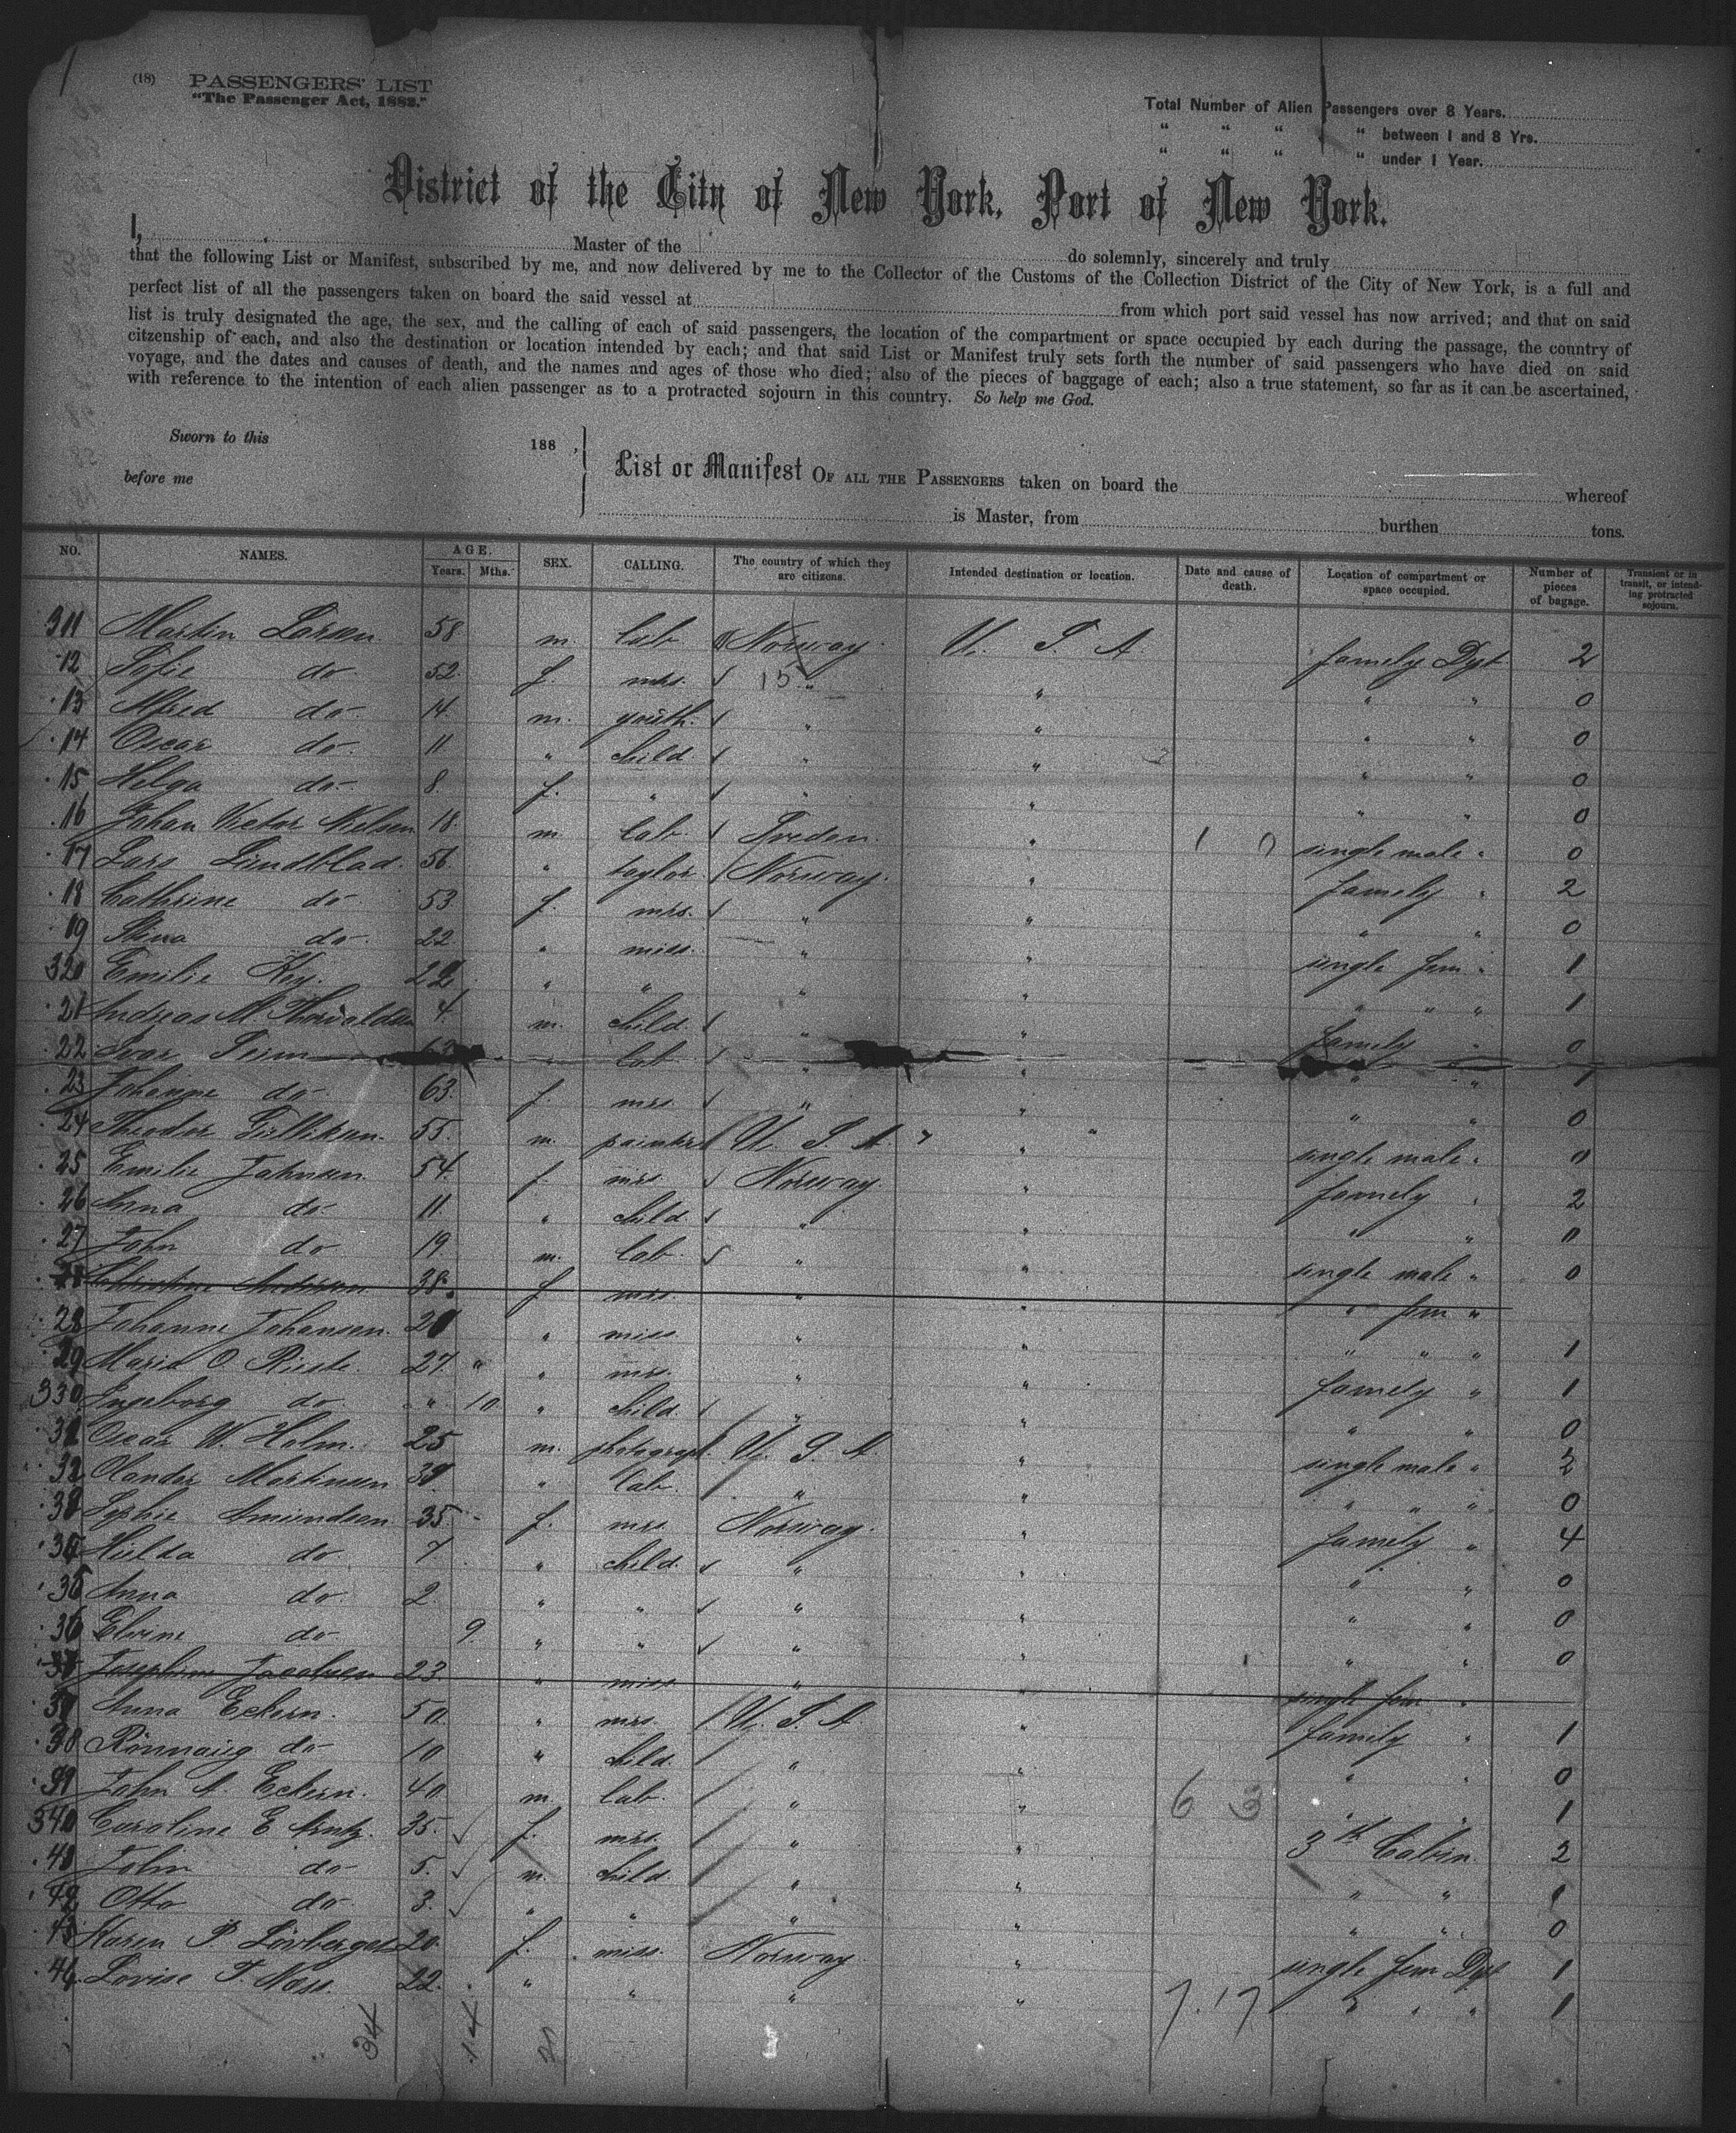 (18) PASSENGERS' LIST
"The Passenger Act, 1882."
Total Number of Alien Passengers over 8 Years.
" " " " between 1 and 8 Yrs.
" " " " under 1 Year.
District of the City of New York, Port of New York.
I, Master of the do solemnly, sincerely and truly
that the following List or Manifest, subscribed by me, and now delivered by me to the Collector of the Customs of the Collection District of the City of New York, is a full and
perfect list of all the passengers taken on board the said vessel at from which port said vessel has now arrived; and that on said
list is truly designated the age, the sex, and the calling of each of said passengers, the location of the compartment or space occupied by each during the passage, the country of
citzenship of each, and also the destination or location intended by each; and that said List or Manifest truly sets forth the number of said passengers who have died on said
voyage, and the dates and causes of death, and the names and ages of those who died; also of the pieces of baggage of each; also a true statement, so far as it can be ascertained,
with reference to the intention of each alien passenger as to a protracted sojourn in this country. So help me God.
Sworn to this 188 ,
before me
List or Manifest OF ALL THE PASSENGERS taken on board the whereof
is Master, from burthen tons.
NO. NAMES. AGE. Years. Mths. SEX. CALLING. The country of which they are citizens. Intended destination or location. Date and cause of death. Location of compartment or space occupied. Number of pieces of bagage. Transient or in transit, or intending protracted sojourn.
311 Martin Larsen 58 m. lab Norway U. S. A famely Dpt 2
12 Sofie do 52 f. mrs. 15 " " " " 0
13 Alfred do 14 m. youth. " " " " 0
14 Oscar do 11 " child " " " " 0
15 Helga do 8 f. " " " " " 0
16 Johan Victor Nielsen 18 m. lab Sveden. " 1 0 single male " 0
17 Lars Lundblad. 56 " taylor Norway. " famely " 2
18 Cathrine do 53 f. mrs. " " " " 0
19 Stina do 22 " miss. " " single fem " 1
320 Emilie Key. 22 " " " " " " " 1
21 Andreas M. Thorvaldsen 4 m. child " " famely " 0
22 Ivar lab " " " " 1
23 Johanne do 63. f. mrs " " " " 0
24 Theodor Gulliksen. 55. m. painter U. S. A " single male " 0
25 Emilie Johnsen 54 f. mrs Norway. " famely " 2
26 Anna do 11 " child " " " " 0
27 John do 19 m. lab " " single male " 0
Christine Andersen 38. f mrs. " " " fem "
28 Johanne Johansen. 20 " miss " " " " " 1
29 Maria O. 27. " " mrs. " " famely " 1
330 Ingeborg do " 10 " child. " " " " 0
31 Oscar W. Holm. 25 m. photograph. U. S. A " single male " 2
32 Olander Martinsen 39 " lab. " " " " " 0
33 Sophie Amundsen 35 f. mrs Norway. " famely " 4
34 Hilda do 7 " child. " " " " 0
35 Anna do 2 " " " " " " 0
36 Elvine do 9. " " " " " " 0
37 Josephine Jacobsen 23 " miss " " single fem "
37 Anna Eckern. 50 " mrs. U. S. A. " family " 1
38 Rönnaug do 10 " child. " " " " 0
39 John A. Eckern. 40 m. lab. " " 6 3 " " 1
340 Caroline E. 35. f. mrs. " " 3th Cabin 2
41 John do 5. m. child " " " " 1
42 Otto do 3. " " " " " " 0
43 Karen P. 20 f. miss. Norway " single fem Dpt 1
44 Lovise T. Næss. 22. " " " " 7. 17 " " " 1
34 14 21